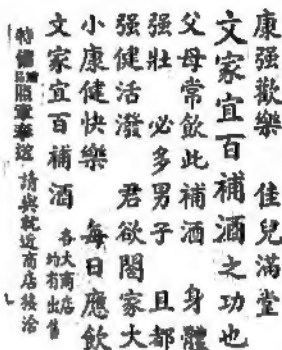 康强歡樂　佳兒滿堂
文家宜百補酒之功也
父母常飲此補酒　身體
强壯　必多男子　且都
强健活潑　君欲閤家大
小康健快樂　每日應飲
文家宜百補酒
各大商店
均有出售
特備 照章奉送 請與就近商店接洽